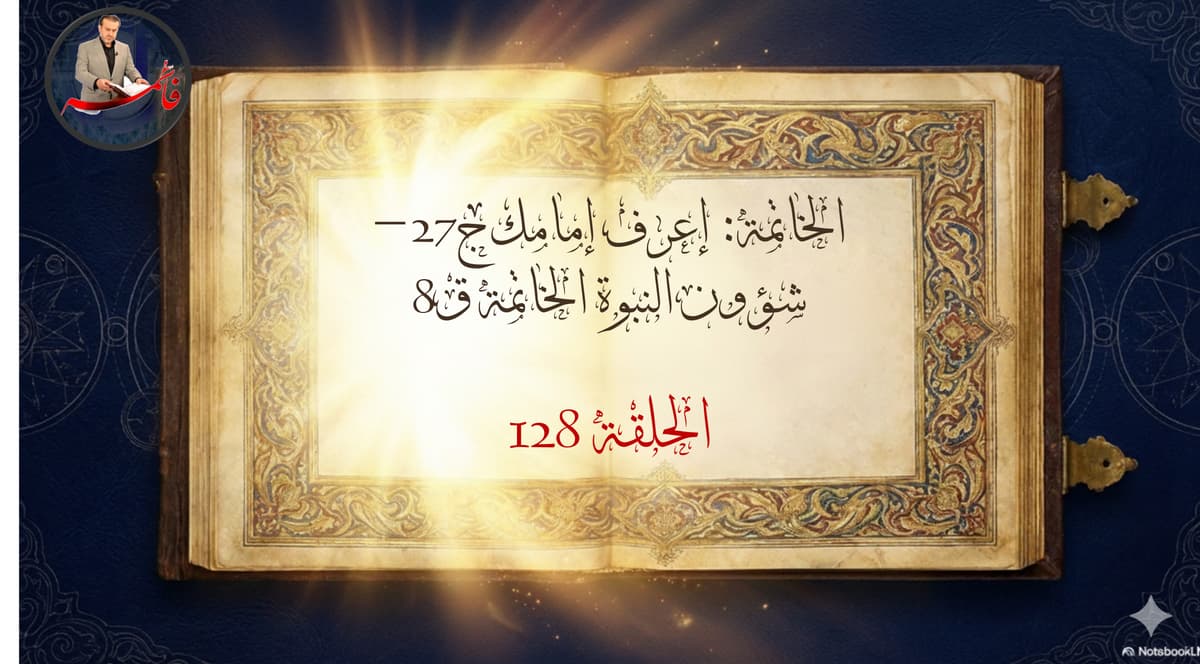 فاطمة
الخاتمة: إعرف إمامك ج27 –
شؤون النبوة الخاتمة ق8
الحلقة 128
NotsbookL